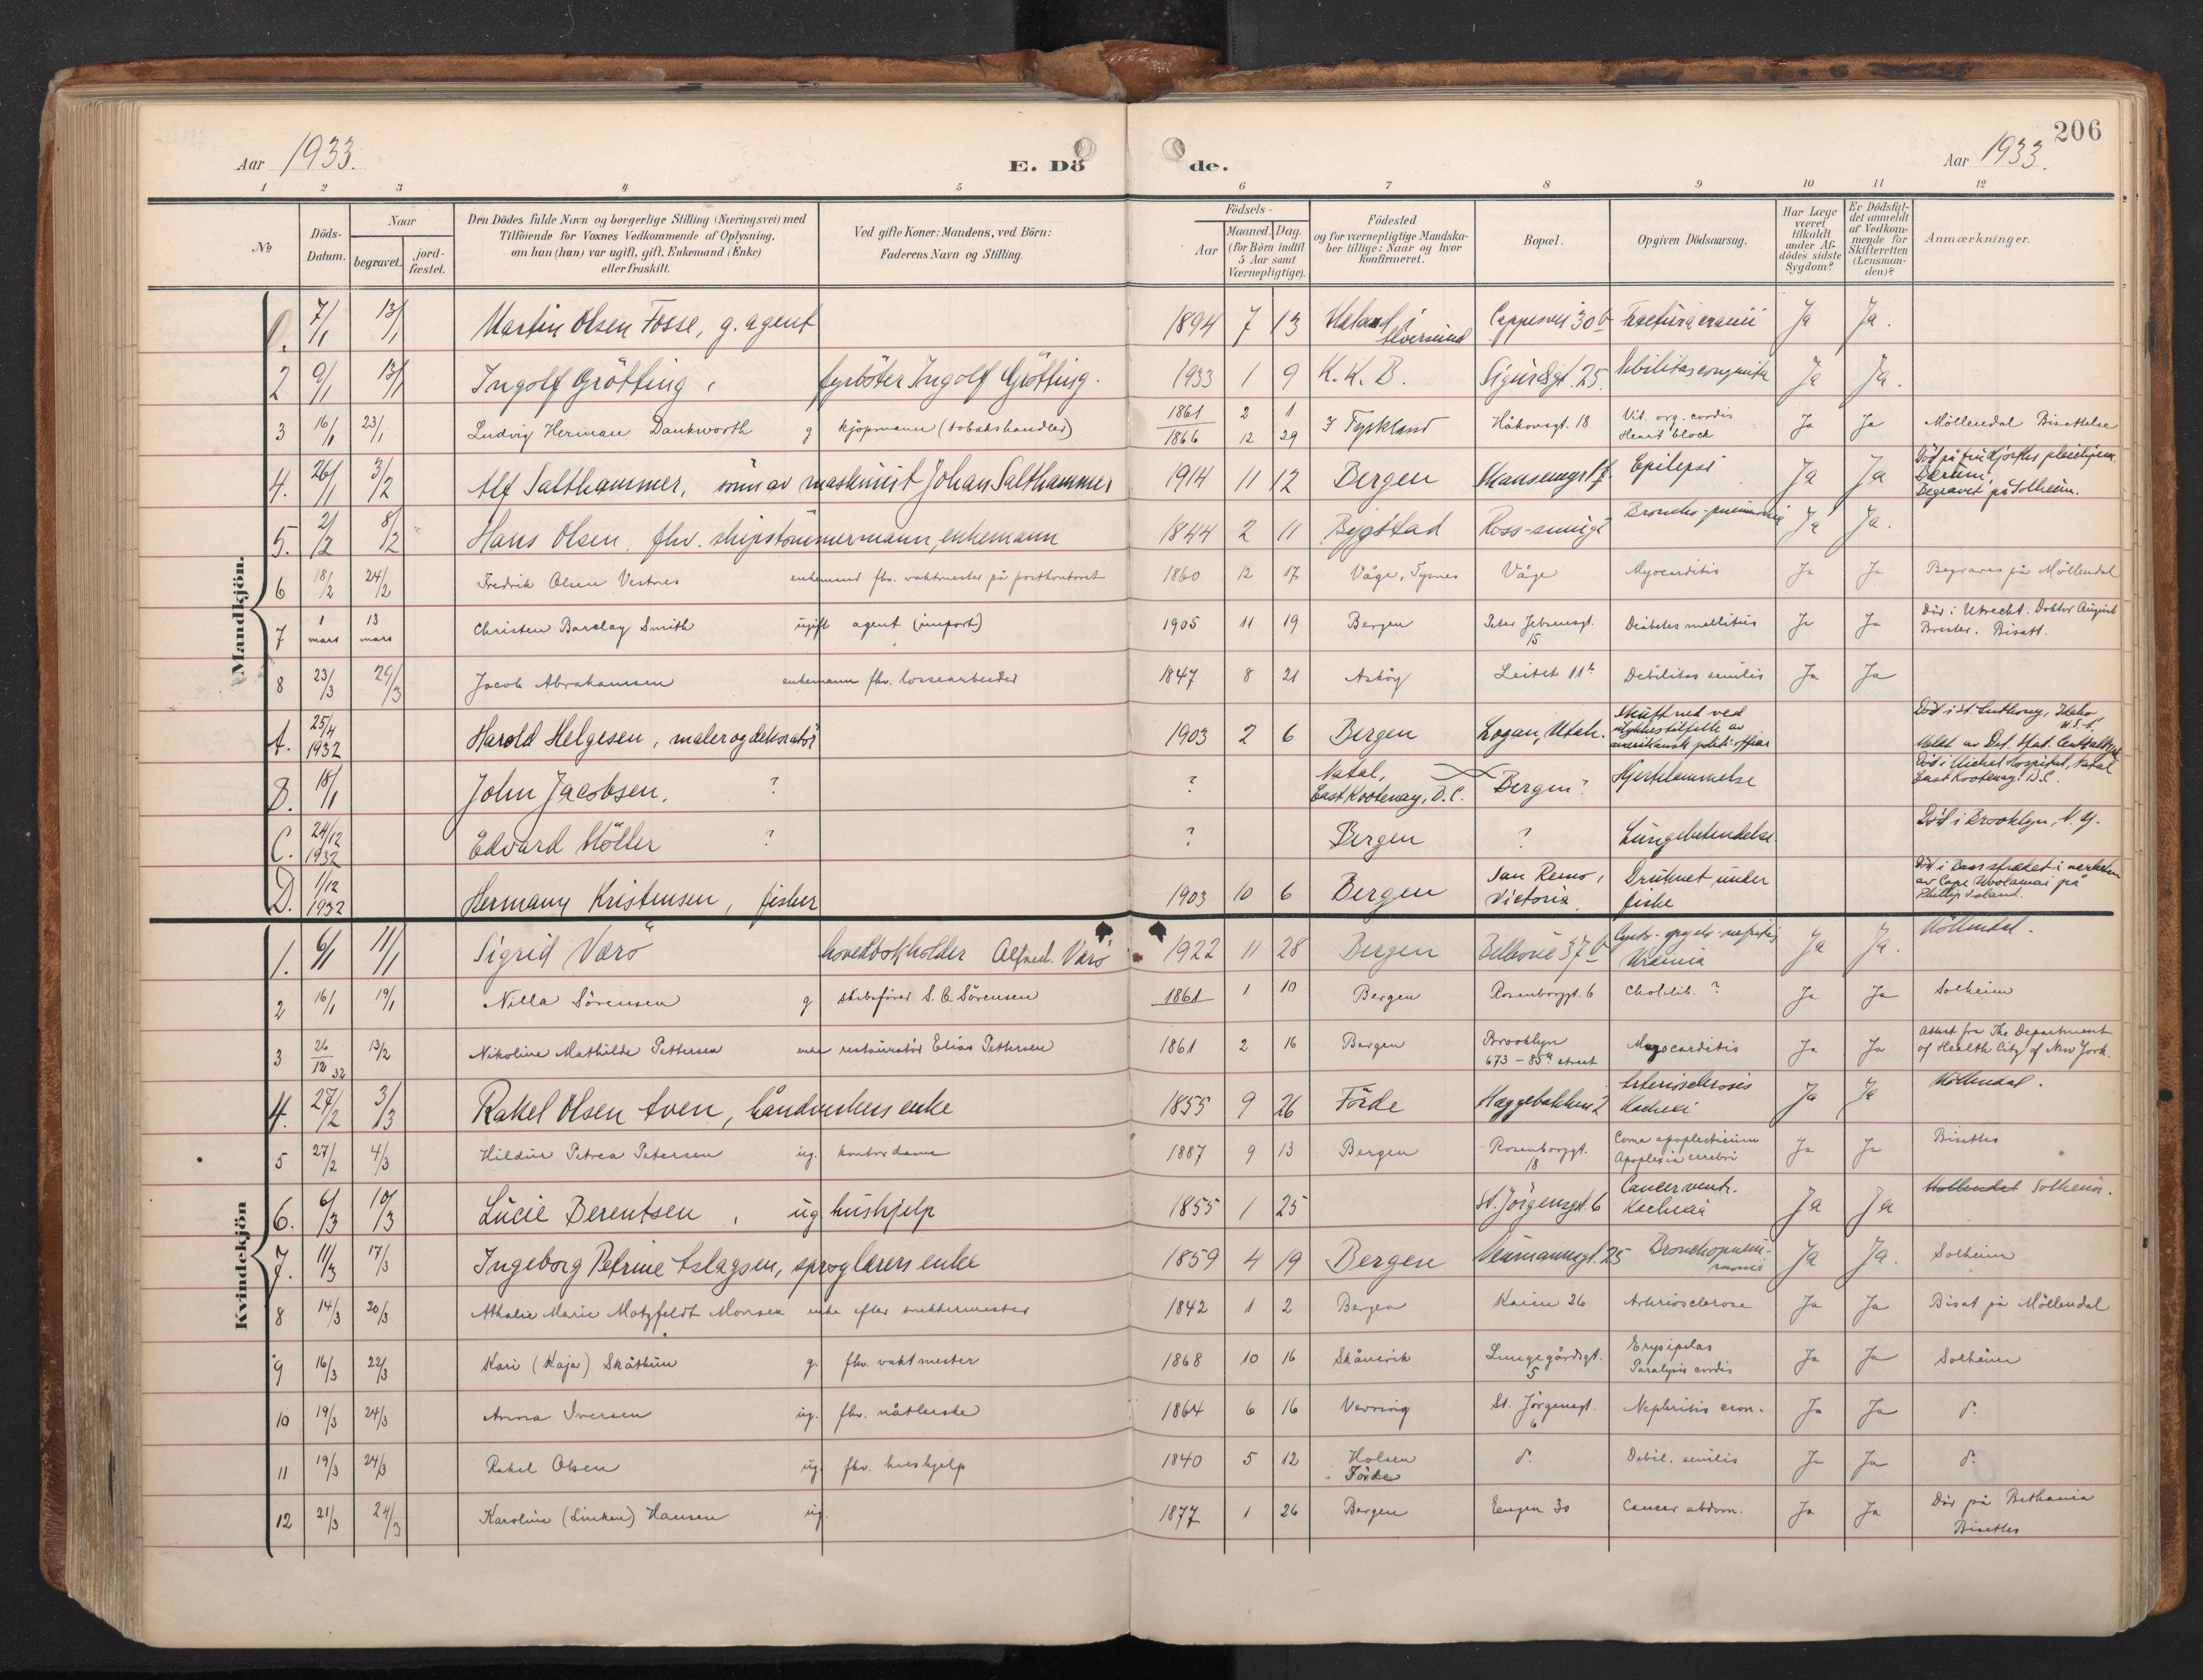 206
Aar 1933.
E. Dö de.
Aar 1933.
1 2 3 4 5 6 7 8 9 10 11 12
No
Döds-Datum.
Naar
begravet.
jord-fæstet.
Den Dödes fulde Navn og borgerlige Stilling (Næringsvei) med
Tilföiende for Voxnes Vedkommende af Oplysning,
om han (hun) var ugift, gift, Enkemand (Enke)
eller fraskilt.
Ved gifte Koner: Mandens, ved Börn:
Faderens Navn og Stilling.
Födsels-
Aar
Maaned. Dag.
(for Börn indtil
5 Aar samt
Værnepligtige).
Födested
og for værnepligtige Mandska-
ber tillige: Naar og hvor
Konfirmeret.
Bopæl.
Opgiven Dödsaarsag.
Har Læge
været
tilkaldt
under Af-
dödes sidste
Sygdom?
Er Dödsfal-
det anmeldt
af Vedkom-
mende for
Skifteretten
(Lensman-
den)?
Anmærkninger.
Mandkjön.
1. 7/1 13/1 Martin Olsen Fosse, g. agent 1894 7 13 i Alversund Cappesvei 30b Fractura cranii Ja Ja.
2 9/1 13/1 Ingolf Grötting, fyrböter Ingolf Grötting. 1933 1 9 K.K.B. Sigurdsgt. 25. Debilitas congenita Ja Ja.
3 16/1 23/1 Ludvig Herman Dankworth g kjöpmann (tobakshandler) 1861 2 1 1866 12 29 I Tyskland Håkonsgt. 18 Vit. org. cordis Heart block Ja Ja Möllendal Bisættelse
4. 26/1 3/2 Alf Salthammer, sönn av maskinist Johan Salthammer 1914 11 12 Bergen Epilepsi Ja Ja Död på pleiehjem, Bærum. Begravet på Solheim.
5. 2/2 8/2 Hans Olsen, fhv. skipstömmermann, enkemann 1844 2 11 Bygstad Ross-smug 2 Broncho-pneumonia Ja Ja.
6 18/2 24/2 Fredrik Olsen Vestnes enkemand fhv. vaktmester på postkontoret 1860 12 17 Våge, Tysnes Våge Myocarditis Ja Ja Begraves på Möllendal
7 1 mars 13 mars Christen Barclay Smith ugift agent (import) 1905 11 19 Bergen Peter Jebsensgt. 15 Diabetes mellitus Ja Ja Död i Utrecht. Doktor August Bisatt.
8 23/3 29/3 Jacob Abrahamsen enkemann fhv. lossearbeider 1847 8 21 Asköy Leitet 11 b Debilitas senilis Ja Ja
A. 25/4 1932 Harold Helgesen, maler og dekoratör 1903 2 6 Bergen Logan, Utah. Skutt ned ved ulykkestilfelle av amerikansk politi-offiser Död i St. Anthony, Idaho, U.S.A. Meldt av Det. Stat. Centralbyrå
B. 18/1 John Jacobsen. ? ? Natal, East Kootenay, B.C. Bergen? Hjertelammelse Död i Michel hospital, Natal East Kootenay, B.C.
C. 24/12 1932 Edvard Möller ? ? Bergen ? Lungebetendelse. Död i Brooklyn, N.Y.
D. 1/12 1932 Hermann Kristensen, fisker 1903 10 6 Bergen San Remo, Victoria. Druknet under fiske Död i Bass strædet i nærheten av Cape Woolamai på Phillip Island.
Kvindekjön
1. 6/1 11/1 Sigrid Værö hovedbokholder Alfred Værö 1922 11 28 Bergen Bellevue 37b Cysto-pyelo-nefritis Uræmia Ja Ja. Möllendal.
2 16/1 19/1 Nilla Sörensen g skibsförer S. C. Sörensen 1861 1 10 Bergen Rosenborggt. 6 Cholelit. ? Ja Ja Solheim
3 26/12 32 13/2 Nikoline Mathilde Pettersen enke restauratör Elias Pettersen 1861 2 16 Bergen Brooklyn 673 - 85th street Myocarditis Ja Ja Attest fra The Department of Health City of New York.
4. 27/2 3/3 Rakel Olsen Aven, håndverkers enke 1855 9 26 Förde Hæggebakken 2 Arteriosclerosis Kachexi Ja Ja Möllendal.
5 27/2 4/3 Hildur Petrea Petersen ug. kontordame 1887 9 13 Bergen Rosenborggt. 18 Coma apoplecticum Apoplexia cerebri Ja Ja Bisettes
6. 6/3 10/3 Lucie Berentsen, ug. hushjelp 1855 1 25 St. Jörgensgt. 6 Cancer ventr. Kachexia Ja Ja Möllendal Solheim.
7. 11/3 17/3 Ingeborg Petrine Aslagsen, sproglærers enke 1859 4 19 Bergen Neumannsgt. 25 Bronchopneumonia Ja Ja. Solheim
8 14/3 20/3 Athalie Marie Motzfeldt Monsen enke efter snekkermester 1842 1 2 Bergen Kaien 26 Arteriosclerose Ja Ja Bisat på Möllendal
9 16/3 22/3 Kari (Kaja) Skåthun g. fhv. vaktmester 1868 10 16 Skånevik Lungegårdsgt. 5 Erysipelas Paralysis cordis Ja Ja Solheim
10 19/3 24/3 Anna Iversen ug. fhv. nåtlerske 1864 6 16 Vevring St. Jörgensgt. 6 Nephritis cron. Ja Ja do.
11 19/3 24/3 Rakel Olsen ug. fhv. hushjelp 1840 5 12 Holsen Förde do. Debil. senilis Ja Ja do.
12 21/3 24/3 Karoline (Linken) Hansen ug. 1877 1 26 Bergen Engen 30 Cancer abdom. Ja Ja Död på Bethania Bisettes